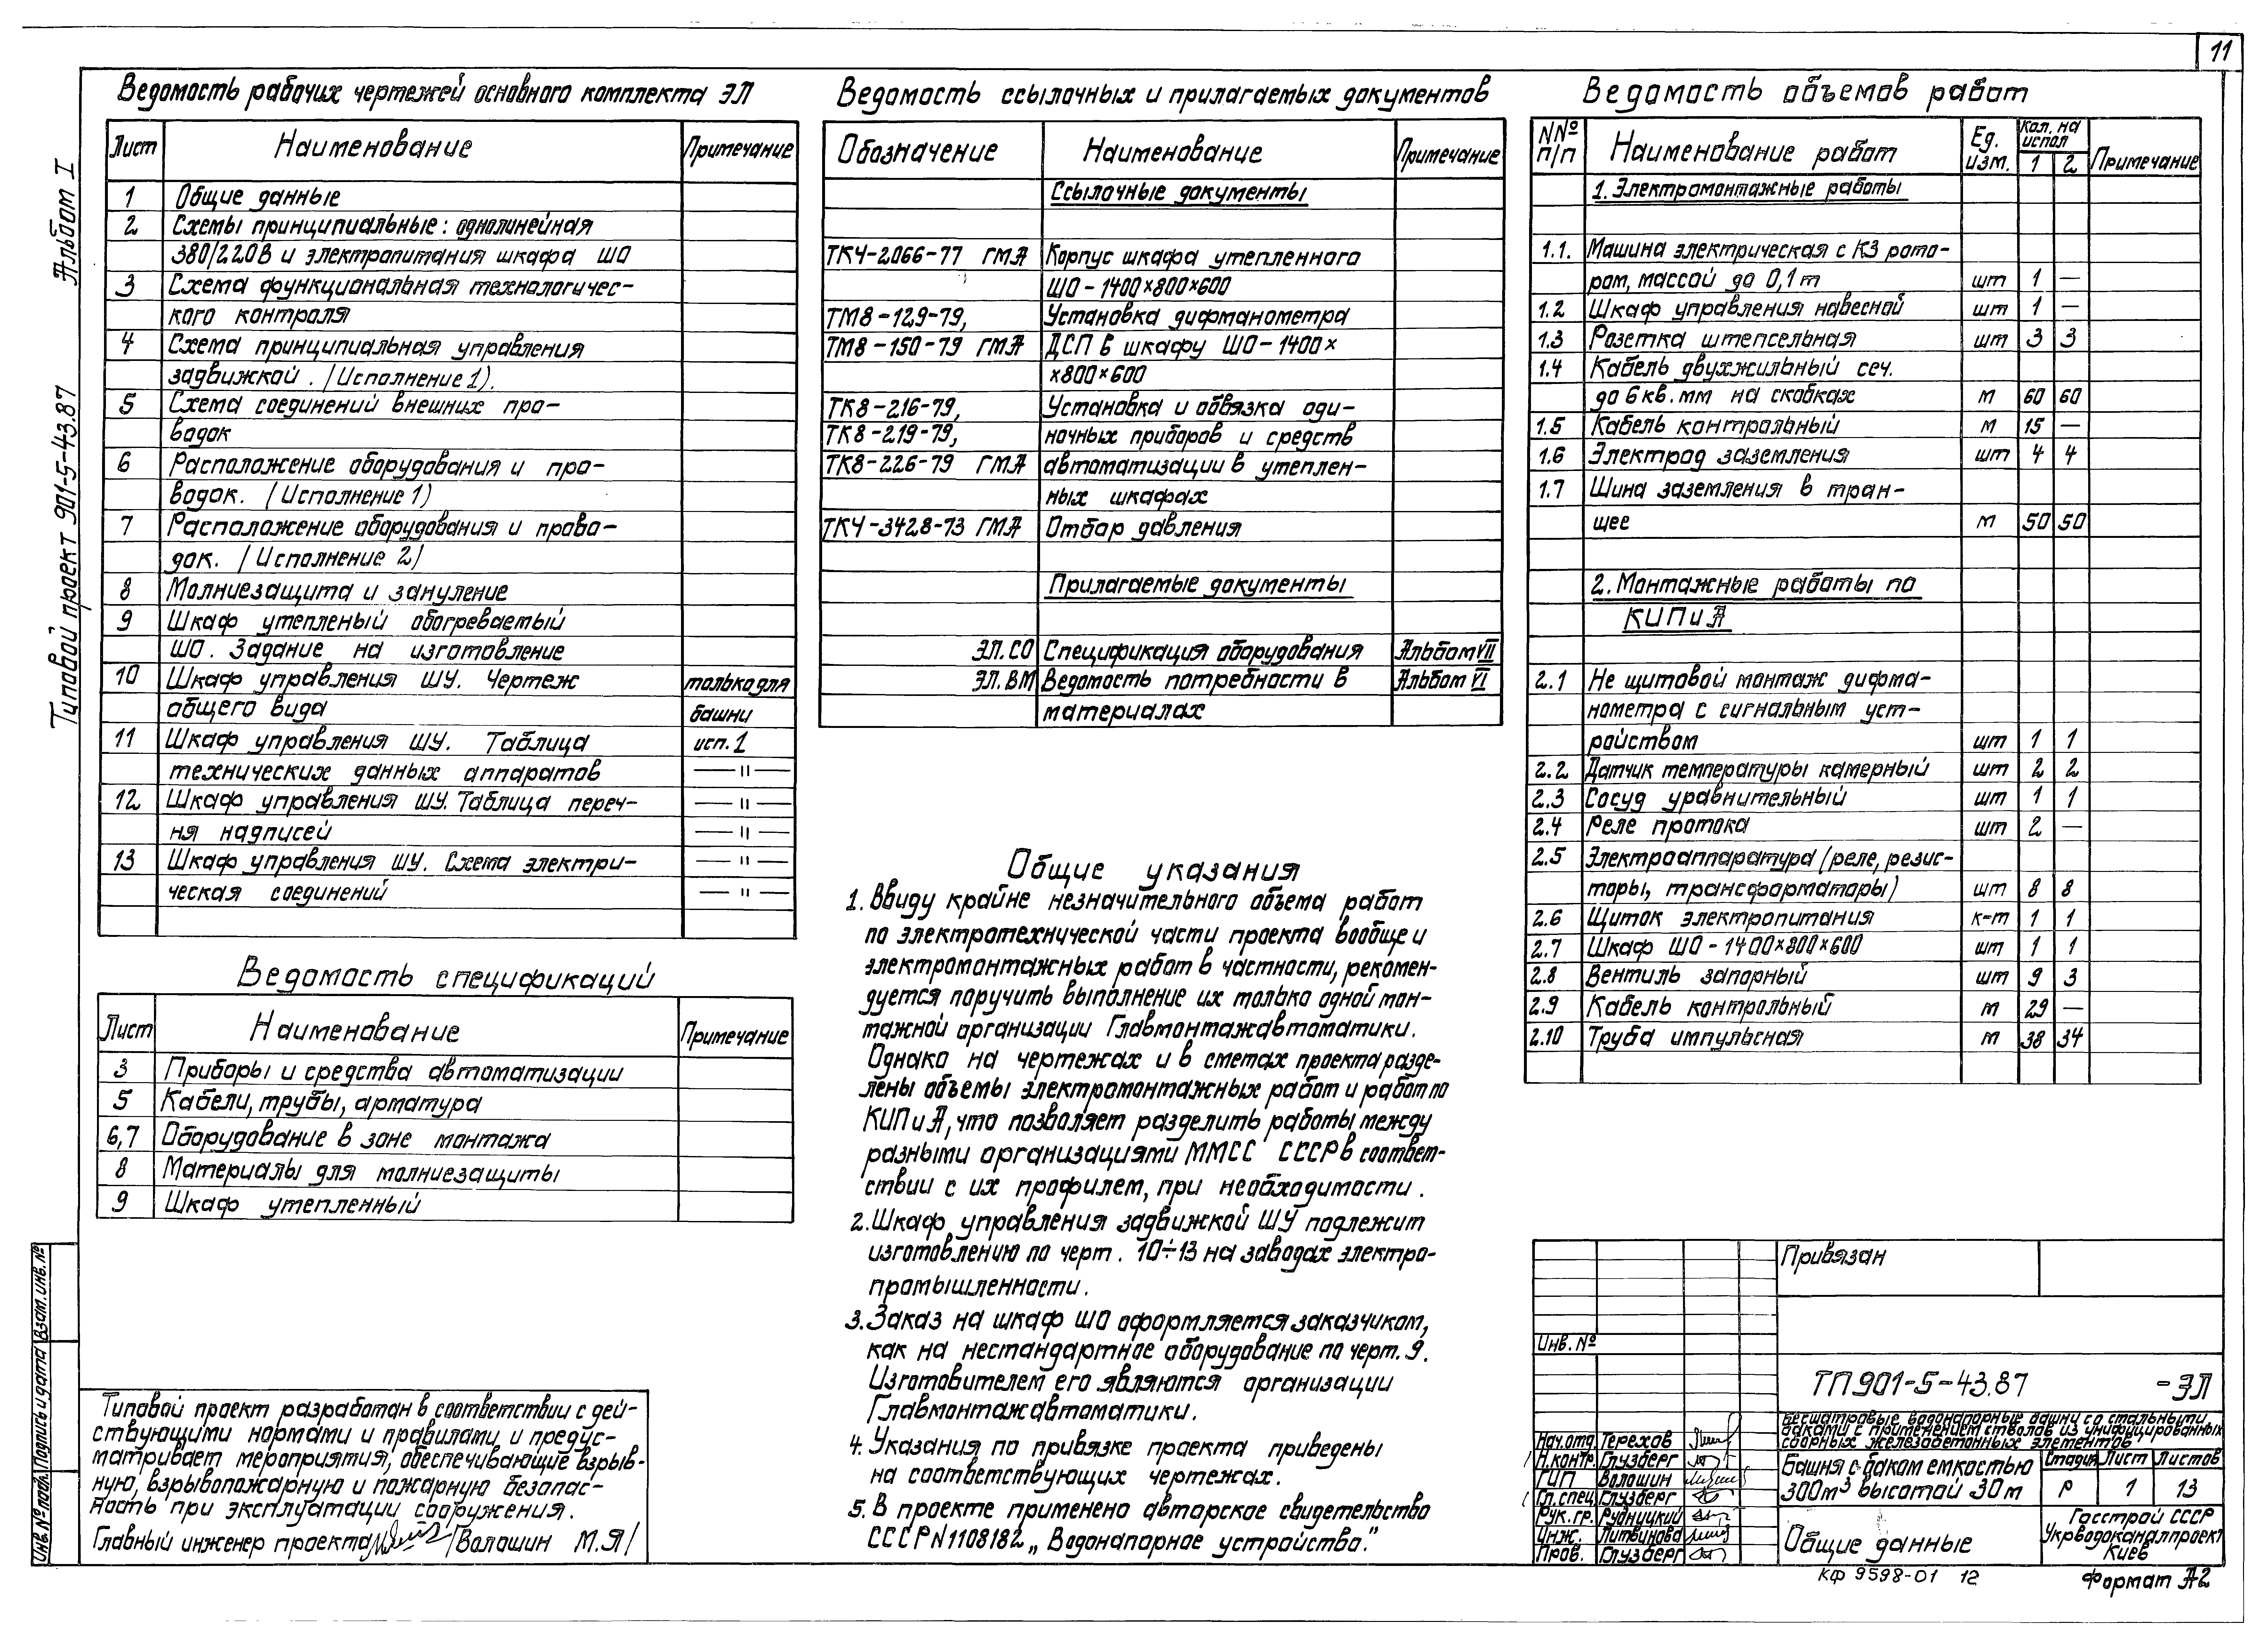 11
Альбом I
Типовой проект 901-5-43.87
Ведомость рабочих чертежей основного комплекта ЭЛ
Лист Наименование Примечание
1 Общие данные
2 Схемы принципиальные: однолинейная
380/220В и электропитания шкафа ШО
3 Схема функциональная технологичес-
кого контроля
4 Схема принципиальная управления
задвижкой. (Исполнение 1).
5 Схема соединений внешних про-
водок
6 Расположение оборудования и про-
водок. (Исполнение 1)
7 Расположение оборудования и прово-
док. (Исполнение 2)
8 Молниезащита и зануление
9 Шкаф утепленый обогреваемый
ШО. Задание на изготовление
10 Шкаф управления ШУ. Чертеж только для
общего вида башни
11 Шкаф управления ШУ. Таблица исп. 1
технических данных аппаратов — " —
12 Шкаф управления ШУ. Таблица переч- — " —
ня надписей — " —
13 Шкаф управления ШУ. Схема электри- — " —
ческая соединений — " —
Ведомость спецификаций
Лист Наименование Примечание
3 Приборы и средства автоматизации
5 Кабели, трубы, арматура
6,7 Оборудование в зоне монтажа
8 Материалы для молниезащиты
9 Шкаф утепленный
Типовой проект разработан в соответствии с дей-
ствующими нормами и правилами и предус-
матривает мероприятия, обеспечивающие взрыв-
ную, взрывопожарную и пожарную безопас-
ность при эксплуатации сооружения.
Главный инженер проекта /Волошин М.Я/
Ведомость ссылочных и прилагаемых документов
Обозначение Наименование Примечание
Ссылочные документы
ТК4-2066-77 ГМА Корпус шкафа утепленного
ШО-1400×800×600
ТМ8-129-79, Установка дифманометра
ТМ8-150-79 ГМА ДСП в шкафу ШО-1400×
×800×600
ТК8-216-79, Установка и обвязка оди-
ТК8-219-79, ночных приборов и средств
ТК8-226-79 ГМА автоматизации в утеплен-
ных шкафах
ТК4-3428-73 ГМА Отбор давления
Прилагаемые документы
ЭЛ.СО Спецификация оборудования Альбом VII
ЭЛ.ВМ Ведомость потребности в Альбом VI
материалах
Общие указания
1. Ввиду крайне незначительного объема работ
по электротехнической части проекта вообще и
электромонтажных работ в частности, рекомен-
дуется поручить выполнение их только одной мон-
тажной организации Главмонтажавтоматики.
Однако на чертежах и в сметах проекта разде-
лены объемы электромонтажных работ и работ по
КИПиА, что позволяет разделить работы между
разными организациями ММСС СССР в соответ-
ствии с их профилем, при необходимости.
2. Шкаф управления задвижкой ШУ подлежит
изготовлению по черт. 10÷13 на заводах электро-
промышленности.
3. Заказ на шкаф ШО оформляется заказчиком,
как на нестандартное оборудование по черт. 9.
Изготовителем его являются организации
Главмонтажавтоматики.
4. Указания по привязке проекта приведены
на соответствующих чертежах.
5. В проекте применено авторское свидетельство
СССР N1108182 „Водонапорное устройство."
Ведомость объемов работ
NNº п/п Наименование работ Ед. изм. Кол. на испол 1 2 Примечание
1. Электромонтажные работы
1.1. Машина электрическая с КЗ рото-
ром, массой до 0,1т шт 1 —
1.2 Шкаф управления навесной шт 1 —
1.3 Розетка штепсельная шт 3 3
1.4 Кабель двухжильный сеч.
до 6 кв. мм на скобках м 60 60
1.5 Кабель контрольный м 15 —
1.6 Электрод заземления шт 4 4
1.7 Шина заземления в тран-
шее м 50 50
2. Монтажные работы по
КИПиА
2.1 Не щитовой монтаж дифма-
нометра с сигнальным уст-
ройством шт 1 1
2.2 Датчик температуры камерный шт 2 2
2.3 Сосуд уравнительный шт 1 1
2.4 Реле протока шт 2 —
2.5 Электроаппаратура (реле, резис-
торы, трансформаторы) шт 8 8
2.6 Щиток электропитания к-т 1 1
2.7 Шкаф ШО-1400×800×600 шт 1 1
2.8 Вентиль запорный шт 9 3
2.9 Кабель контрольный м 29 —
2.10 Труба импульсная м 38 34
Привязан
Инв. Nº
ТП 901-5-43.87 -ЭЛ
Бесшатровые водонапорные башни со стальными
баками с применением стволов из унифицированных
сборных железобетонных элементов
Нач.отд. Терехов
Н.контр. Глузберг
ГИП Волошин
Гл.спец. Глузберг
Рук.гр. Рудницкий
Инж. Литвинова
Пров. Глузберг
Башня с баком емкостью
300м³ высотой 30м
Стадия Лист Листов
Р 1 13
Общие данные
Госстрой СССР
Укрводоканалпроект
Киев
КФ 9598-01 12
Формат А2
Инв.Nº подл. Подпись и дата Взам.инв.Nº